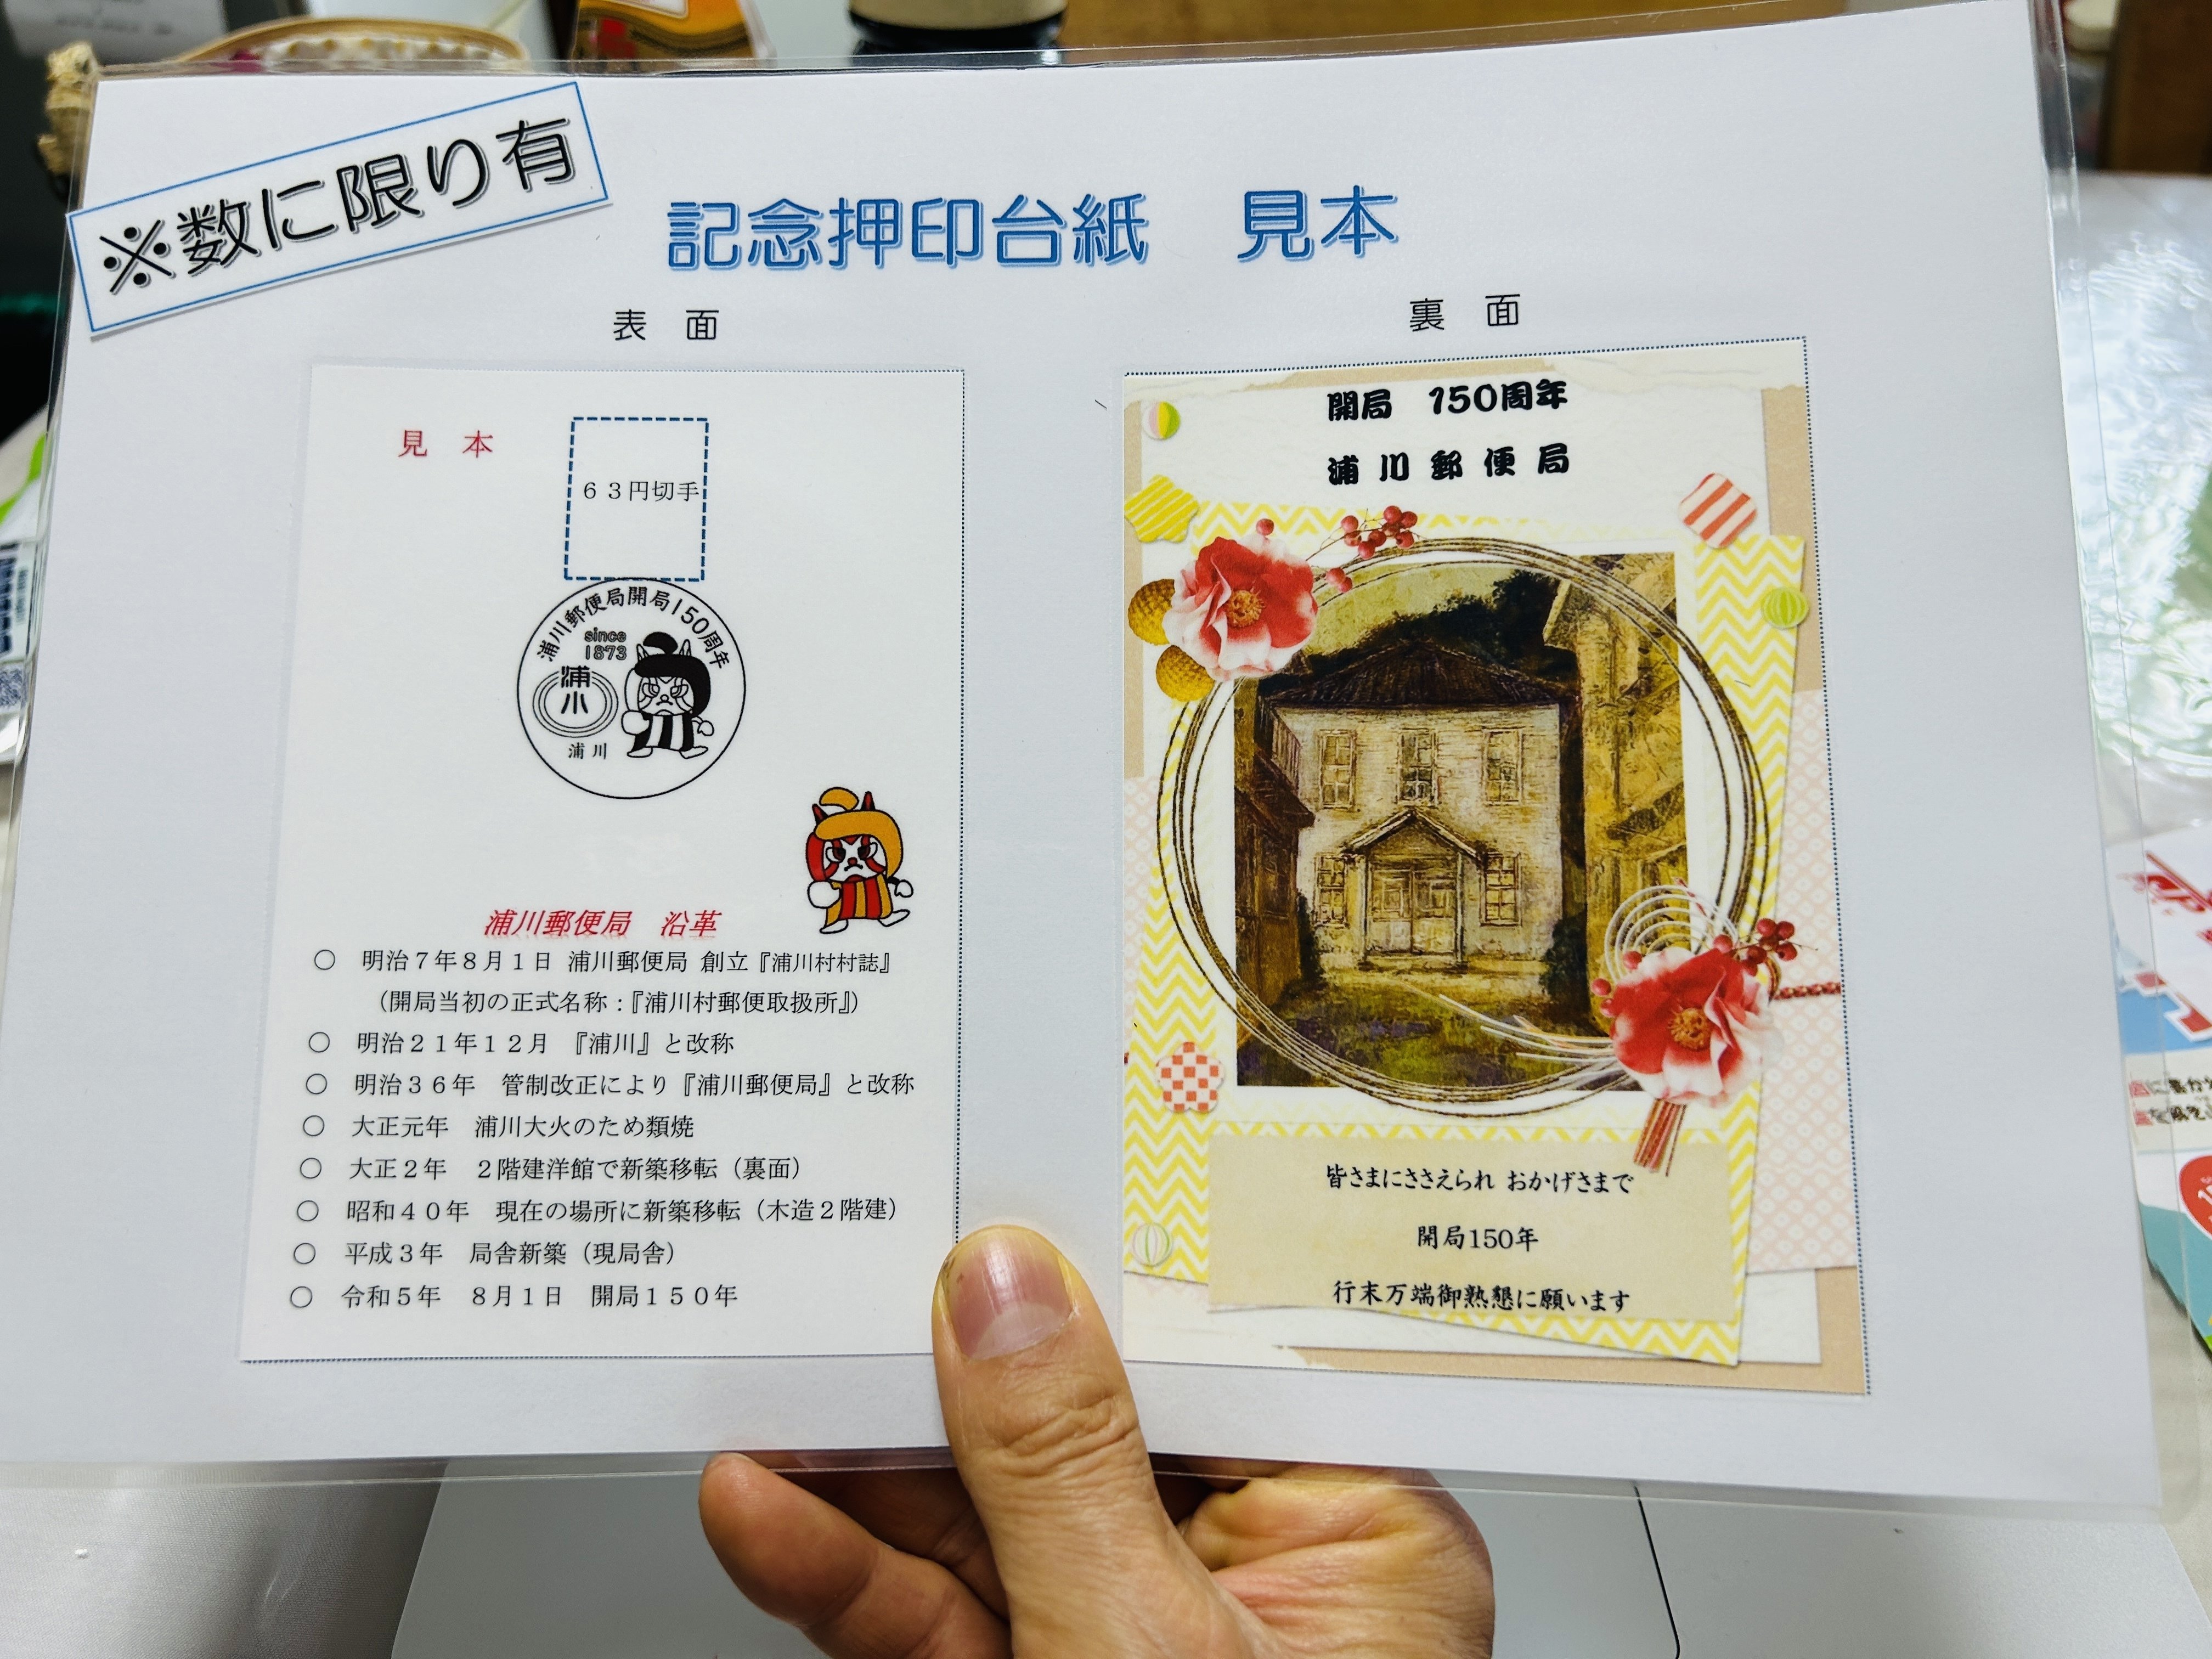 ※数に限り有
記念押印台紙　見本
表　面
見　本
６３円切手
浦川郵便局開局150周年
since
1873
浦小
浦川
浦川郵便局　沿革
○　明治７年８月１日 浦川郵便局 創立『浦川村村誌』
（開局当初の正式名称：『浦川村郵便取扱所』）
○　明治２１年１２月　『浦川』と改称
○　明治３６年　管制改正により『浦川郵便局』と改称
○　大正元年　浦川大火のため類焼
○　大正２年　２階建洋館で新築移転（裏面）
○　昭和４０年　現在の場所に新築移転（木造２階建）
○　平成３年　局舎新築（現局舎）
○　令和５年　８月１日　開局１５０年
裏　面
開局　150周年
浦川郵便局
皆さまにささえられ おかげさまで
開局150年
行末万端御熟懇に願います